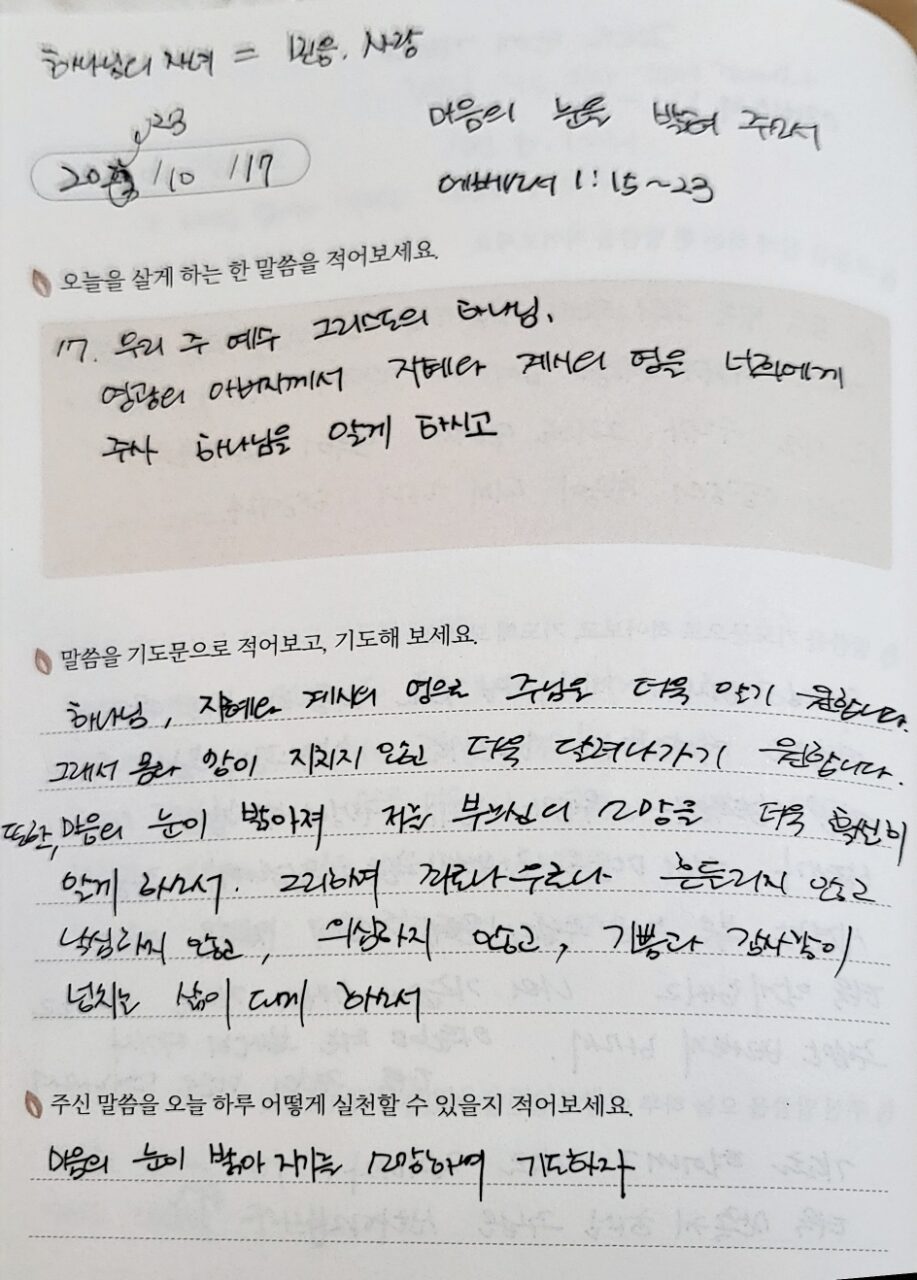 하나님의 자녀 = 믿음. 사랑
23
20 /10 /17
마음의 눈을 밝혀 주소서
에베소서 1:15~23
오늘을 살게 하는 한 말씀을 적어보세요.
17. 우리 주 예수 그리스도의 하나님,
영광의 아버지께서 지혜와 계시의 영을 너희에게
주사 하나님을 알게 하시고
말씀을 기도문으로 적어보고, 기도해 보세요.
하나님, 지혜와 계시의 영으로 주님을 더욱 알기 원합니다.
그래서 몸과 맘이 지치지 않고 더욱 달려나가기 원합니다.
또한, 마음의 눈이 밝아져 저를 부르심의 소망을 더욱 확실히
알게 하소서. 그리하여 좌로나 우로나 흔들리지 않고
낙심하지 않고, 의심하지 않고, 기쁨과 감사함이
넘치는 삶이 되게 하소서
주신 말씀을 오늘 하루 어떻게 실천할 수 있을지 적어보세요.
마음의 눈이 밝아 지기를 소망하며 기도하자